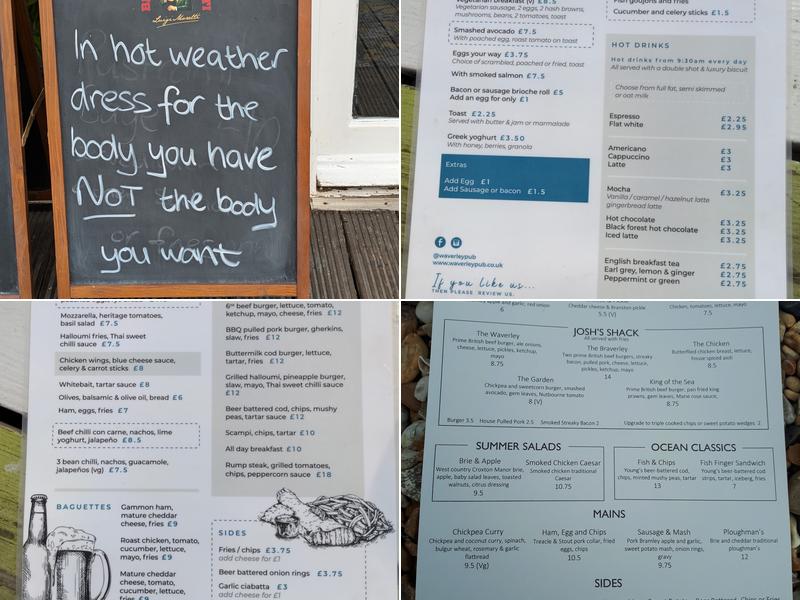 Luigi Moretti
In hot weather
dress for the
body you have
NOT the body
you want
Vegetarian sausage, 2 eggs, 2 hash browns,
mushrooms, beans, 2 tomatoes, toast
Smashed avocado £7.5
With poached egg, roast tomato on toast
Eggs your way £3.75
Choice of scrambled, poached or fried, toast
With smoked salmon £7.5
Bacon or sausage brioche roll £5
Add an egg for only £1
Toast £2.25
Served with butter & jam or marmalade
Greek yoghurt £3.50
With honey, berries, granola
Extras
Add Egg £1
Add Sausage or bacon £1.5
@waverleypub
www.waverleypub.co.uk
If you like us...
THEN PLEASE REVIEW US.
Fish goujons and fries
Cucumber and celery sticks £1.5
HOT DRINKS
Hot drinks from 9:30am every day
All served with a double shot & luxury biscuit
Choose from full fat, semi skimmed
or oat milk
Espresso £2.25
Flat white £2.95
Americano £3
Cappuccino £3
Latte £3
Mocha £3.25
Vanilla / caramel / hazelnut latte
gingerbread latte
Hot chocolate £3.25
Black forest hot chocolate £3.25
Iced latte £3.25
English breakfast tea £2.75
Earl grey, lemon & ginger £2.75
Peppermint or green £2.75
Mozzarella, heritage tomatoes,
basil salad £7.5
Halloumi fries, Thai sweet
chilli sauce £7.5
Chicken wings, blue cheese sauce,
celery & carrot sticks £8
Whitebait, tartar sauce £8
Olives, balsamic & olive oil, bread £6
Ham, eggs, fries £7
Beef chilli con carne, nachos, lime
yoghurt, jalapeño £8.5
3 bean chilli, nachos, guacamole,
jalapeños (vg) £7.5
BAGUETTES
Gammon ham,
mature cheddar
cheese, fries £9
Roast chicken, tomato,
cucumber, lettuce,
mayo, fries £9
Mature cheddar
cheese, tomato,
cucumber, lettuce,
fries £9
6oz beef burger, lettuce, tomato,
ketchup, mayo, cheese, fries £12
BBQ pulled pork burger, gherkins,
slaw, fries £12
Buttermilk cod burger, lettuce,
tartar, fries £12
Grilled halloumi, pineapple burger,
slaw, mayo, Thai sweet chilli sauce
£12
Beer battered cod, chips, mushy
peas, tartar sauce £12
Scampi, chips, tartar £10
All day breakfast £10
Rump steak, grilled tomatoes,
chips, peppercorn sauce £18
SIDES
Fries / chips £3.75
add cheese for £1
Beer battered onion rings £3.75
Garlic ciabatta £3
add cheese for £1
6
Cheddar cheese & Branston pickle
5.5 (V)
Chicken, tomatoes, lettuce, mayo
7.5
JOSH'S SHACK
All served with fries
The Waverley
Prime British beef burger, ale onions,
cheese, lettuce, pickles, ketchup,
mayo
8.75
The Braverley
Two prime British beef burgers, streaky
bacon, pulled pork, cheese, lettuce,
pickles, ketchup, mayo
14
The Chicken
Butterflied chicken breast, lettuce,
house spiced aioli
8.5
The Garden
Chickpea and sweetcorn burger, smashed
avocado, gem leaves, Nutbourne tomato
8 (V)
King of the Sea
Prime British beef burger, pan fried king
prawns, gem leaves, Marie rose sauce,
8.75
Burger 3.5 House Pulled Pork 2.5 Smoked Streaky Bacon 2
Upgrade to triple cooked chips or sweet potato wedges 2
SUMMER SALADS
Brie & Apple
West country Croxton Manor brie,
apple, baby salad leaves, toasted
walnuts, citrus dressing
9.5
Smoked Chicken Caesar
Smoked chicken traditional
Caesar
10.75
OCEAN CLASSICS
Fish & Chips
Young's beer-battered cod,
chips, minted mushy peas, tartar
13
Fish Finger Sandwich
Young's beer-battered cod
strips, tartar, iceberg, fries
7
MAINS
Chickpea Curry
Chickpea and coconut curry, spinach,
bulgur wheat, rosemary & garlic
flatbread
9.5 (Vg)
Ham, Egg and Chips
Treacle & Stout pork collar, fried
eggs, chips
10.5
Sausage & Mash
Pork Bramley apple and garlic,
sweet potato mash, onion rings,
gravy
9.75
Ploughman's
Brie and cheddar traditional
ploughman's
12
SIDES